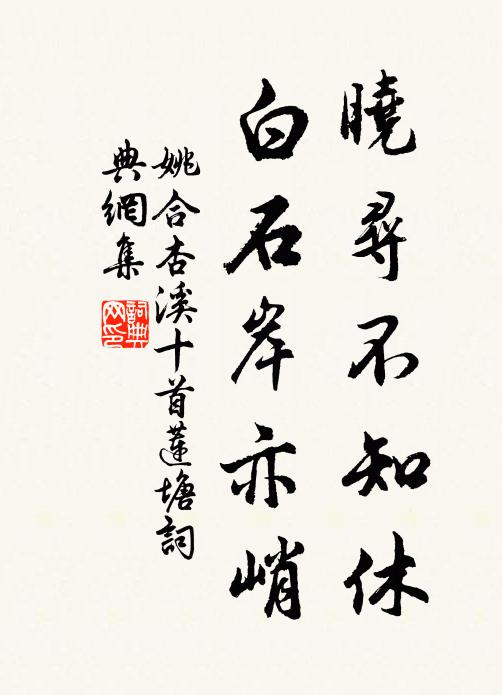 曉尋不知休
白石岸亦峭
姚合杏溪十首蓮塘詞
典網集
詞典
網印